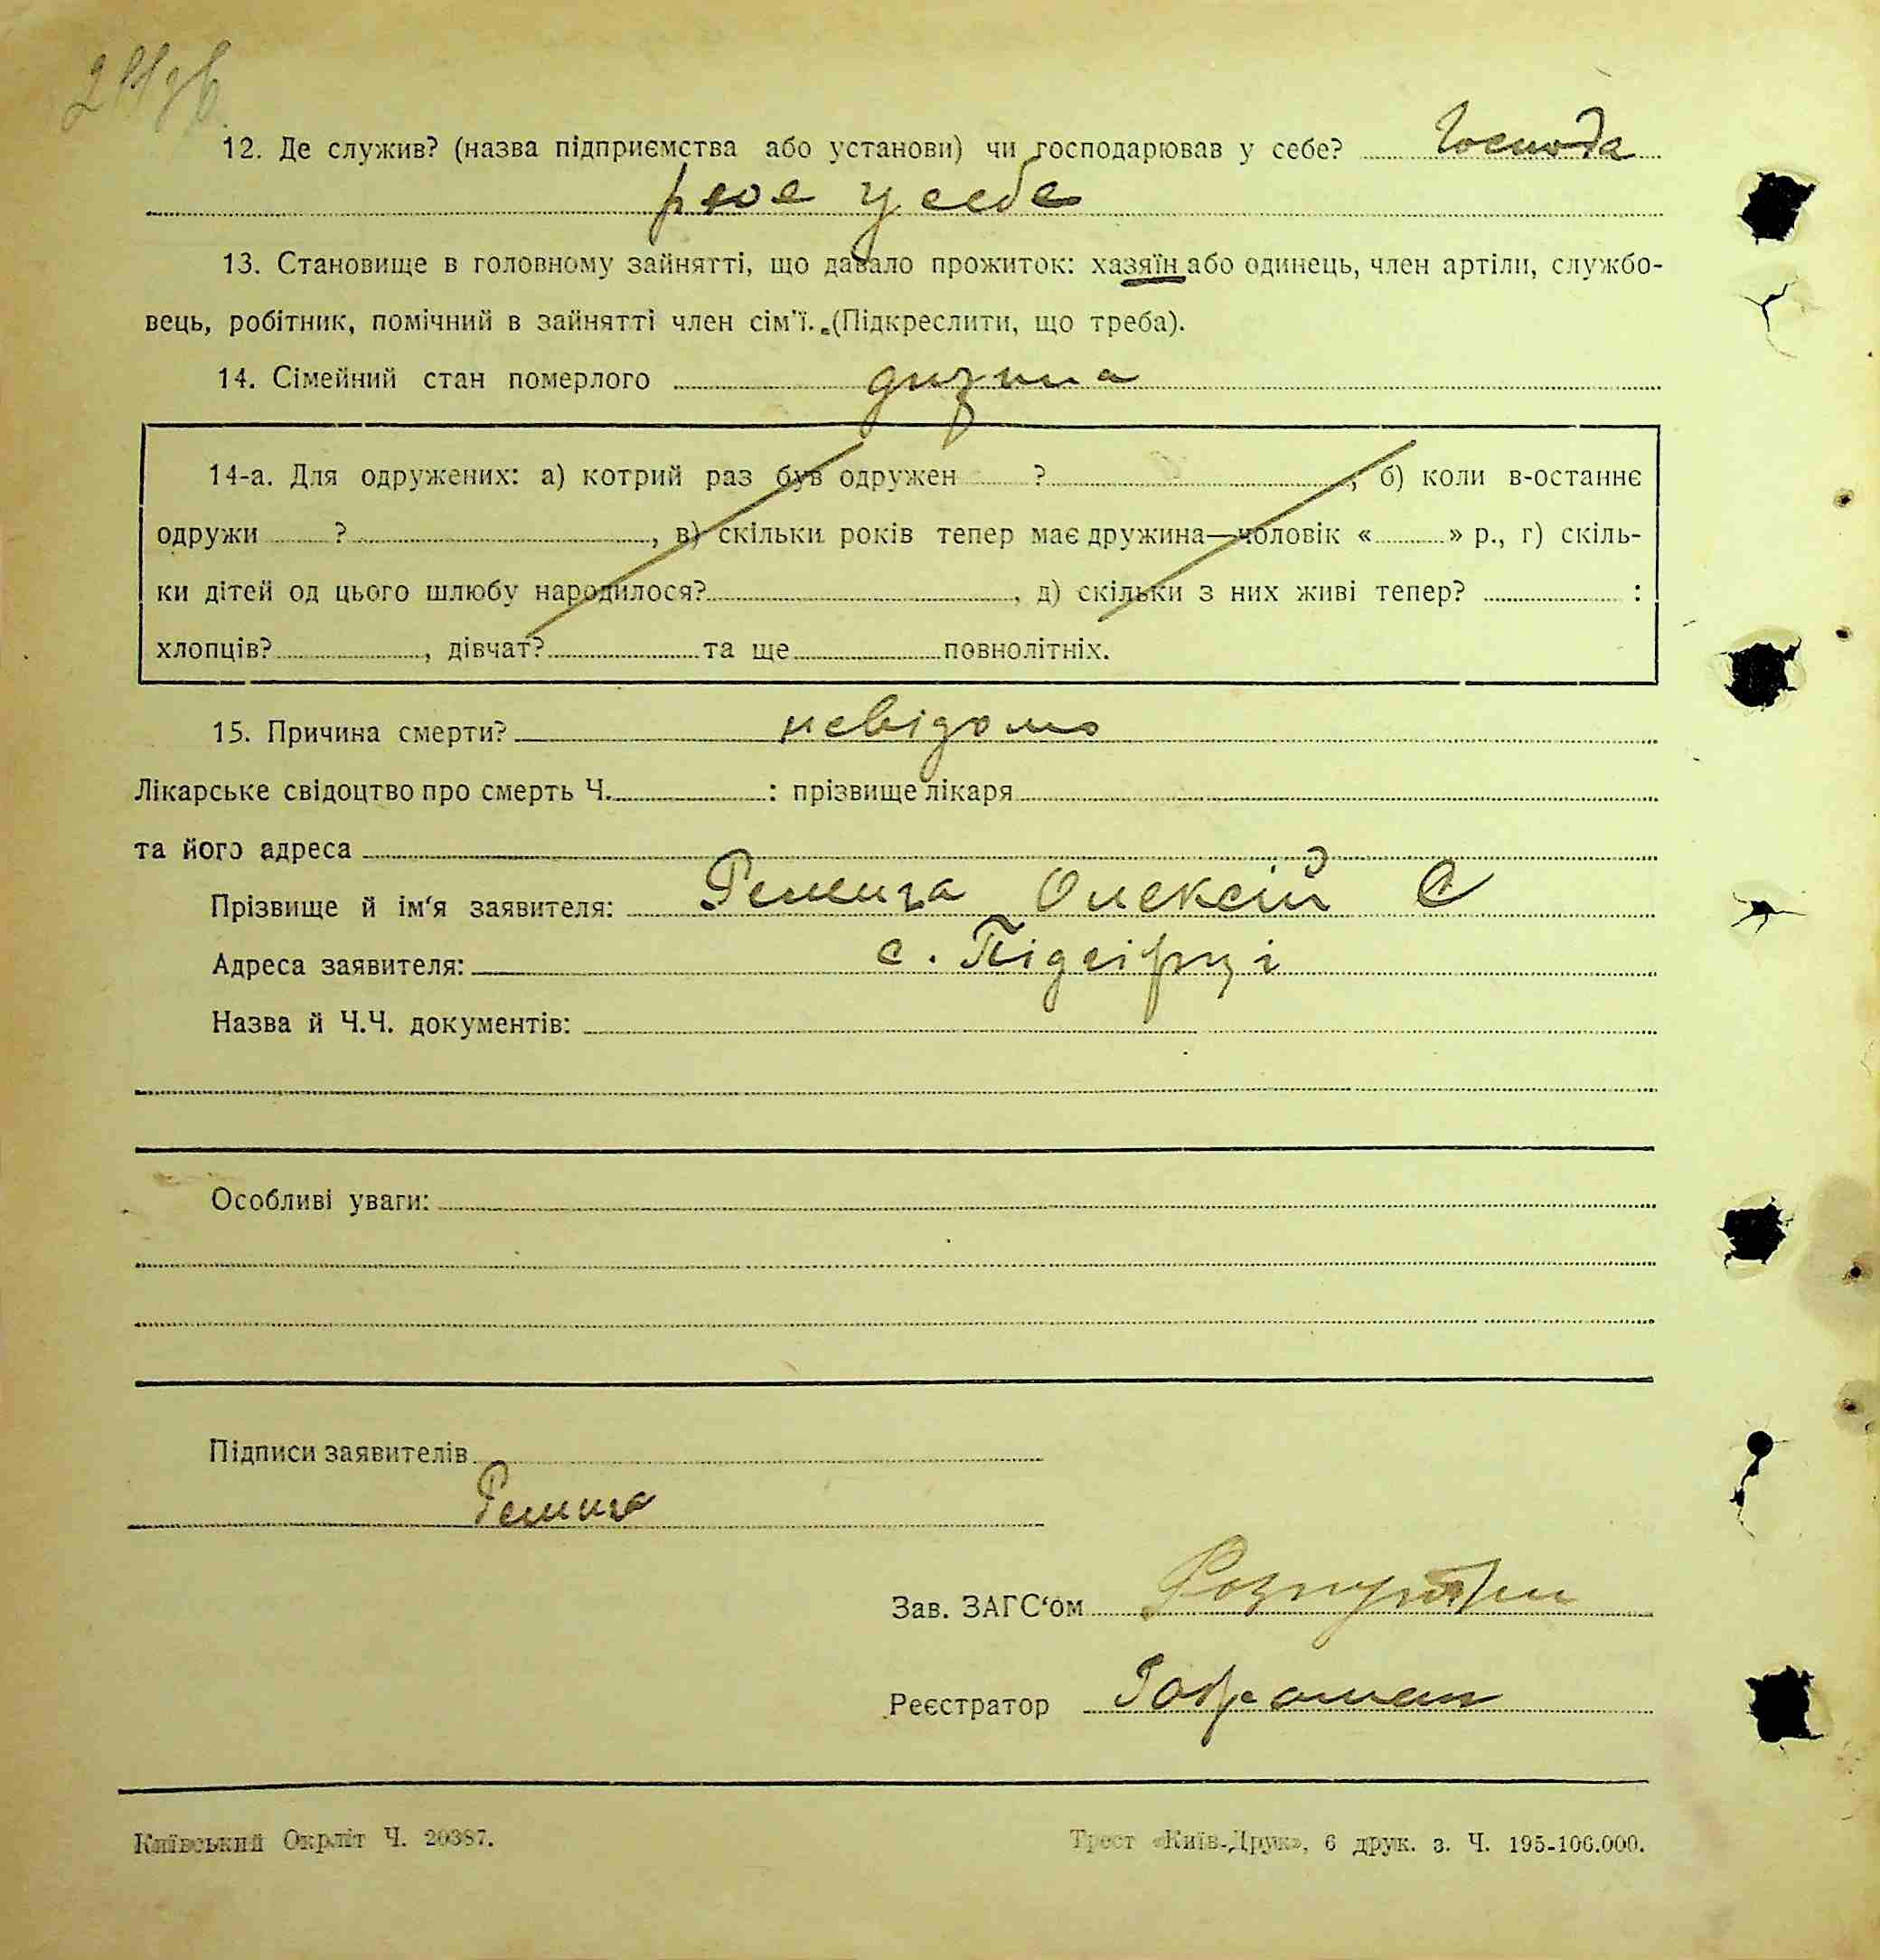 12. Де служив? (назва підприємства або установи) чи господарював у себе? Господа
рює у себе
13. Становище в головному зайнятті, що давало прожиток: хазяїн або одинець, член артіли, службо-
вець, робітник, помічний в зайнятті член сім'ї. (Підкреслити, що треба).
14. Сімейний стан померлого дитина
14-а. Для одружених: а) котрий раз був одружен ? , б) коли в-останнє
одружи ? , в) скільки років тепер має дружина—чоловік « » р., г) скіль-
ки дітей од цього шлюбу народилося? , д) скільки з них живі тепер? :
хлопців? , дівчат? та ще повнолітніх.
15. Причина смерти? невідомо
Лікарське свідоцтво про смерть Ч. : прізвище лікаря
та його адреса
Прізвище й ім'я заявителя: Ремига Олексій С
Адреса заявителя: с. Підгірці
Назва й Ч.Ч. документів:
Особливі уваги:
Підписи заявителів
Ремига
Зав. ЗАГС'ом
Реєстратор
Київський Окрліт Ч. 20387.
Трест «Київ-Друк», 6 друк. з. Ч. 195-106.000.